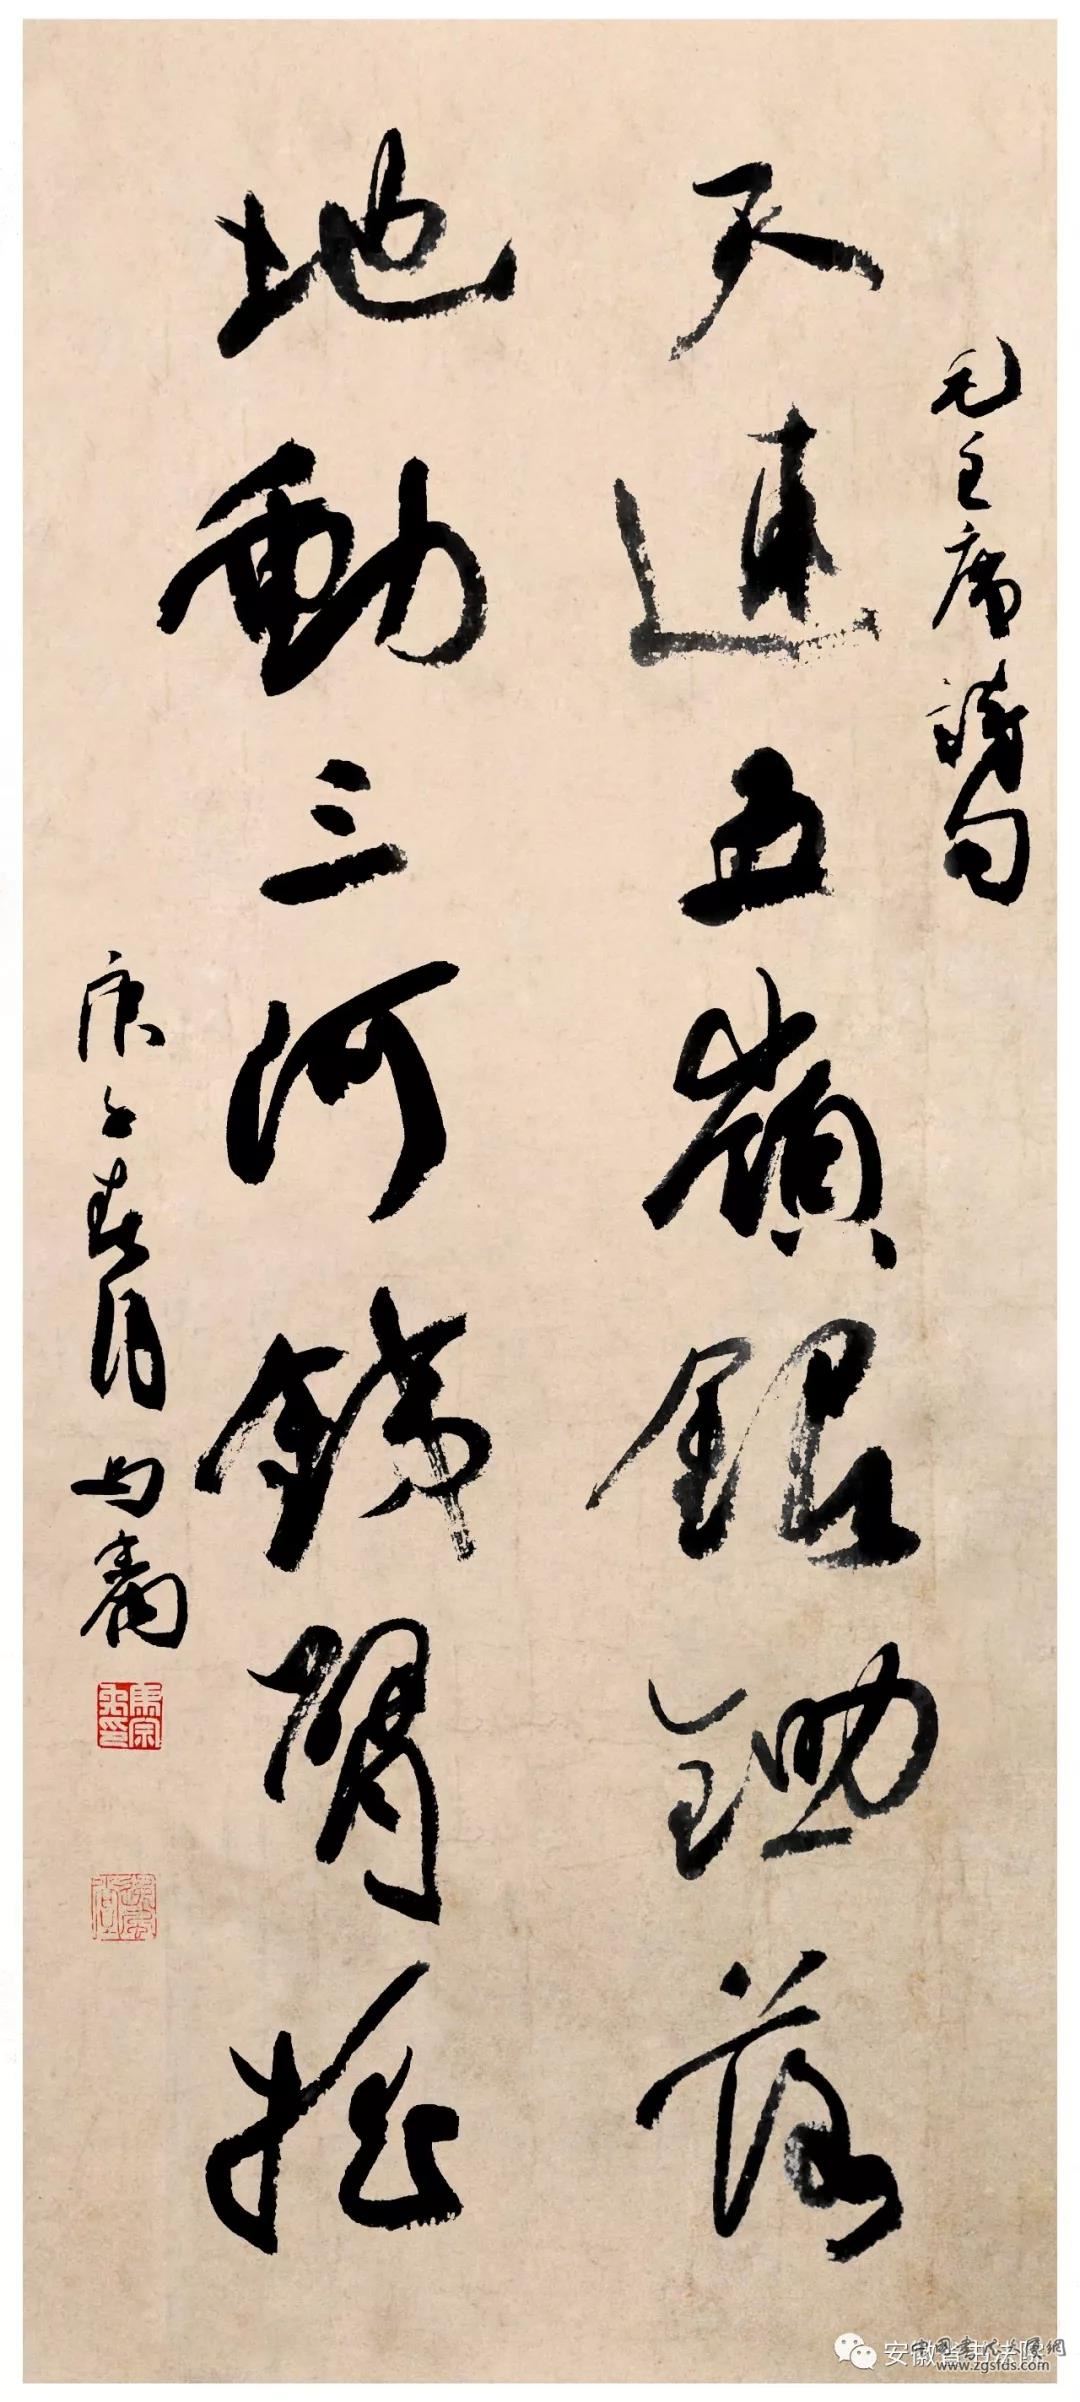 毛主席詩句
天連五嶺銀鋤落
地動三河銕臂搖
庚子春月
安徽省书法院
www.zgsfds.com